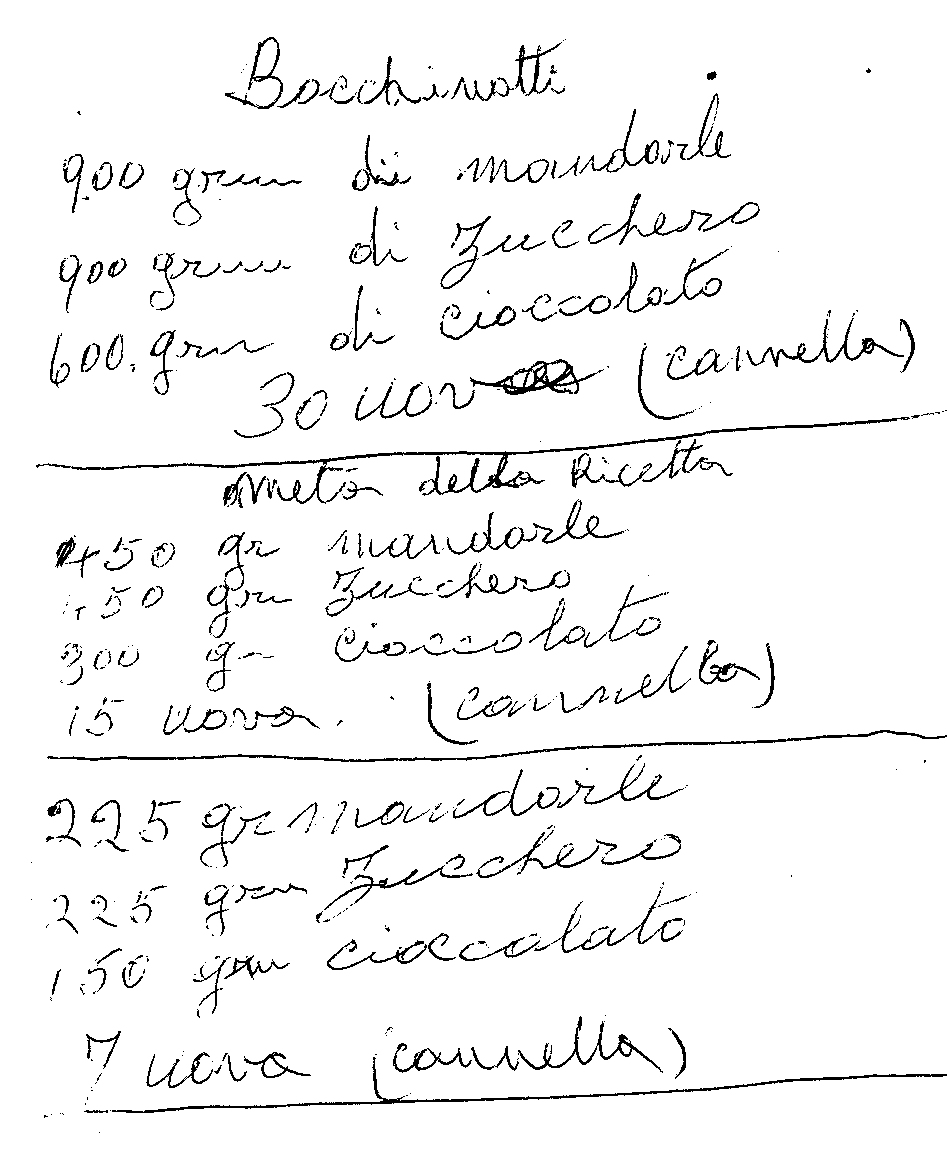 Bocchinotti
900 gram di mandorle
900 gram di Zucchero
600. gram di cioccolato
30 uova (cannella)
Metà della Ricetta
450 gr mandorle
450 gra Zucchero
300 gr cioccolato
15 uova. (cannella)
225 gr mandorle
225 gram Zucchero
150 gram cioccolato
7 uova (cannella)